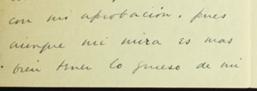 con mi aprobación. pues
aunque mi mira es mas
bien tener lo grueso de mi